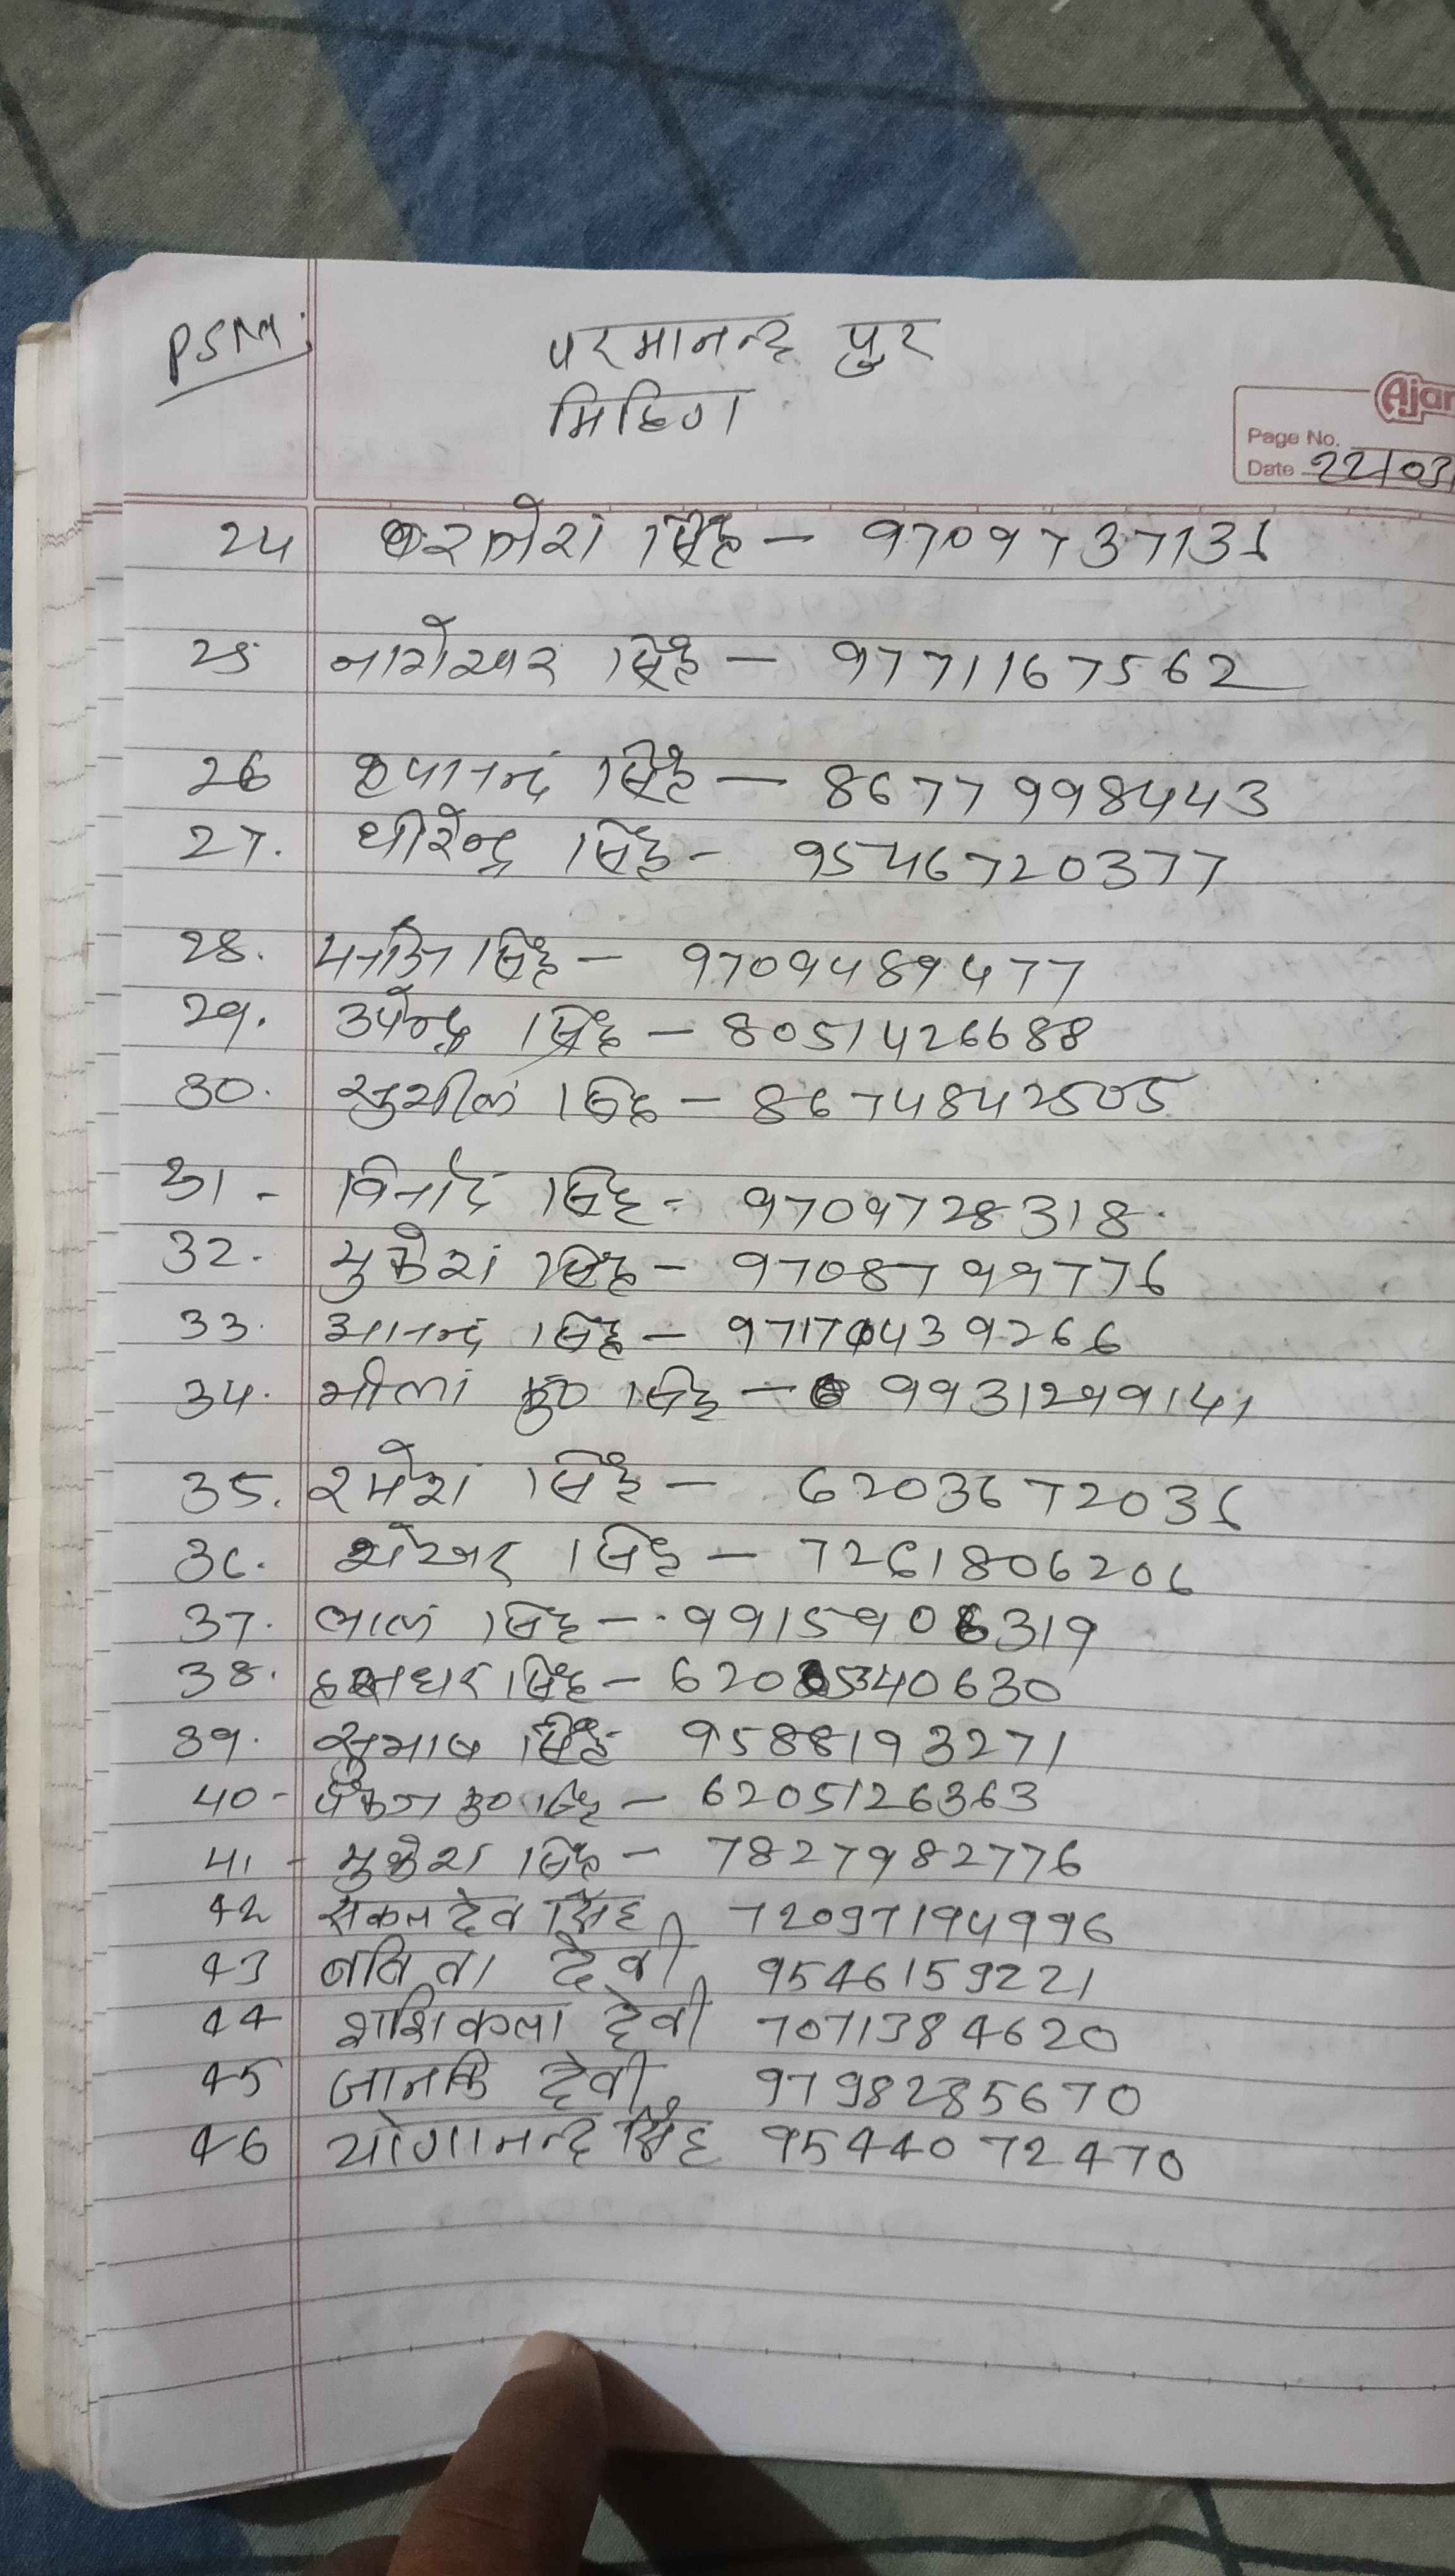 PSM:
परमानन्द पुर
मिटिंग
Ajan
Page No.
Date 22/03
24 सिंह - 9709737136
25 नागेश्वर सिंह - 9771167562
26 कृपानन्द सिंह - 8677998443
27. धीरेन्द्र सिंह - 9546720377
28. सिंह - 9709489477
29. उपेन्द्र सिंह - 8051426688
30. सुशील सिंह - 8674842505
31 - विनोद सिंह - 9709728318.
32. मुकेश सिंह - 9708799776
33. आनन्द सिंह -
34. भोला कु० सिंह - 9931299141
35. रमेश सिंह - 6203672036
36. शेखर सिंह - 7261806206
37. लाल सिंह - 9915906319
38. हलधर सिंह -
39. सुभाष सिंह 9588193271
40 - पंकज कु० सिंह - 6205126363
41 - मुकेश सिंह - 7827982776
42 सकलदेव सिंह 72097194996
43 बबिता देवी 9546159221
44 शशिकला देवी 7071384620
45 जानकि देवी 9798285670
46 योगानन्द सिंह 9544072470